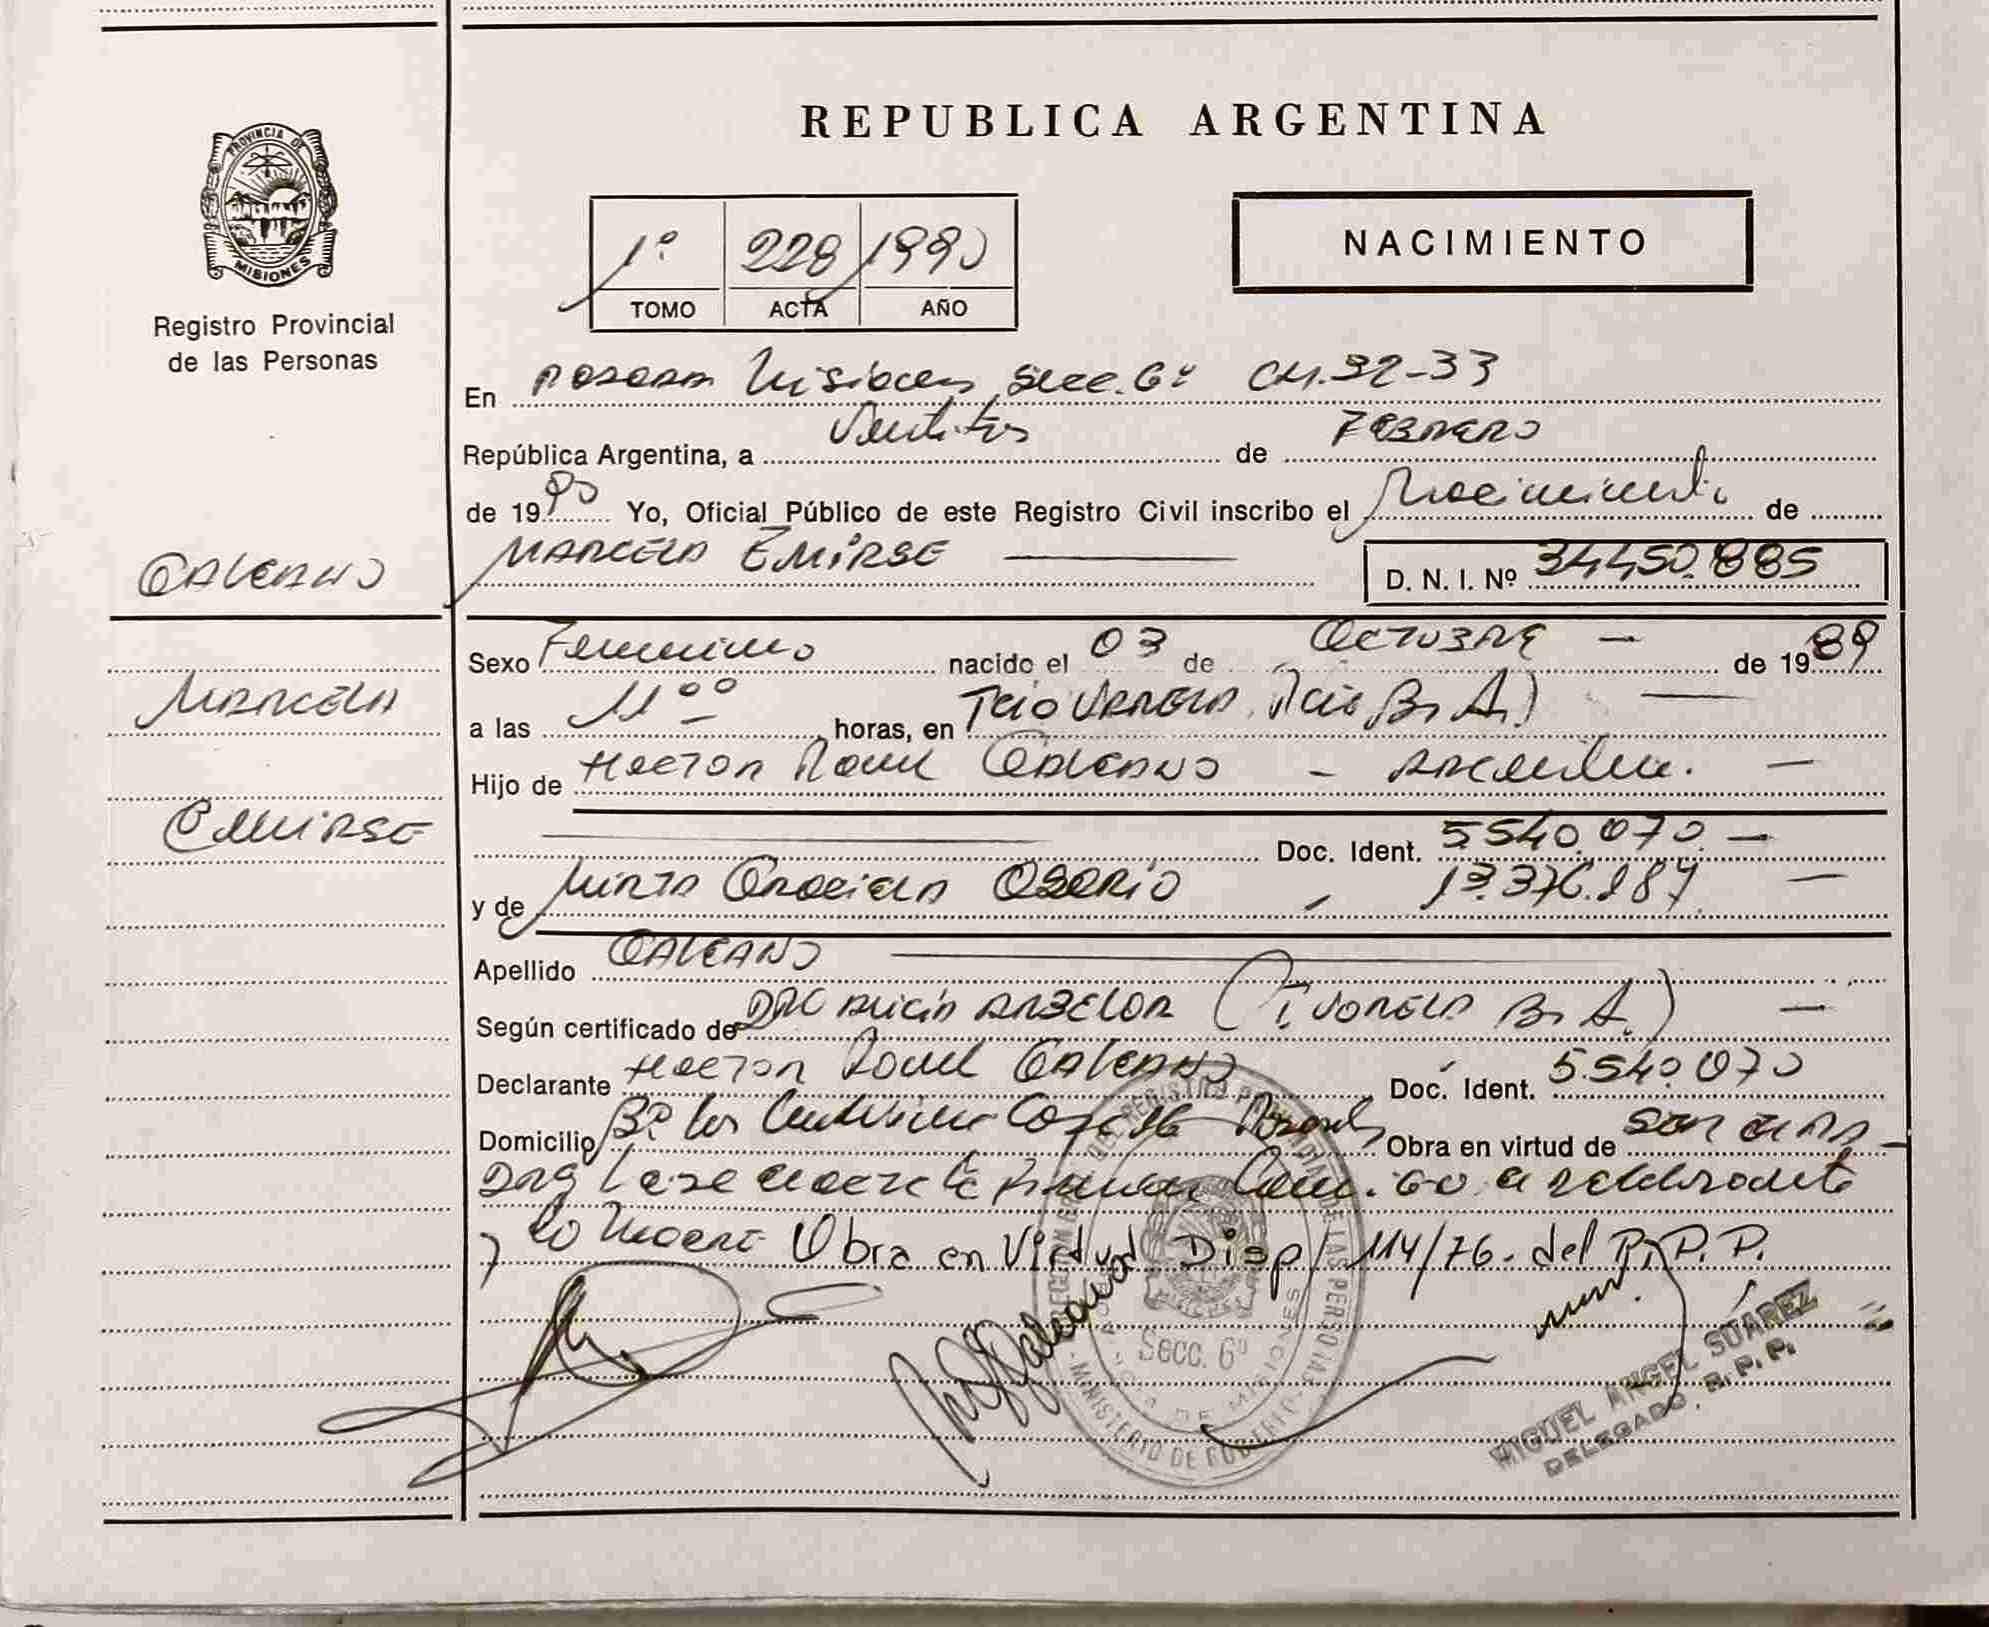 REPUBLICA ARGENTINA
PROVINCIA DE MISIONES
Registro Provincial
de las Personas
NACIMIENTO
1º 228 1990
TOMO ACTA AÑO
En Posadas Misiones Secc. 6º CH. 32-33
República Argentina, a Veintitres de FEBRERO
de 1990 Yo, Oficial Público de este Registro Civil inscribo el Nacimiento de
MARCELA EMIRSE D. N. I. Nº 34.450.885
GALEANO
MARCELA
EMIRSE
Sexo Femenino nacido el 03 de OCTUBRE de 1989
a las 11ºº horas, en VARELA Bs As)
Hijo de HECTOR Raul GALEANO - Argentino. -
Doc. Ident. 5.540.070. -
y de MIRTA GRACIELA OSORIO 13.376.187 -
Apellido GALEANO
Según certificado de ALICIA (F. VARELA Bs A.) -
Declarante HECTOR Raul GALEANO Doc. Ident. 5.540.070
Domicilio Bº Casa Obra en virtud de
la
lo Obra en Virtud Disp/ 114/76. del R. P. P.
DEL REGISTRO PROVINCIAL DE LAS PERSONAS
MINISTERIO DE GOBIERNO
PROVINCIA DE MISIONES
Secc. 6º
MIGUEL ANGEL SUÁREZ
DELEGADO, R. P. P.